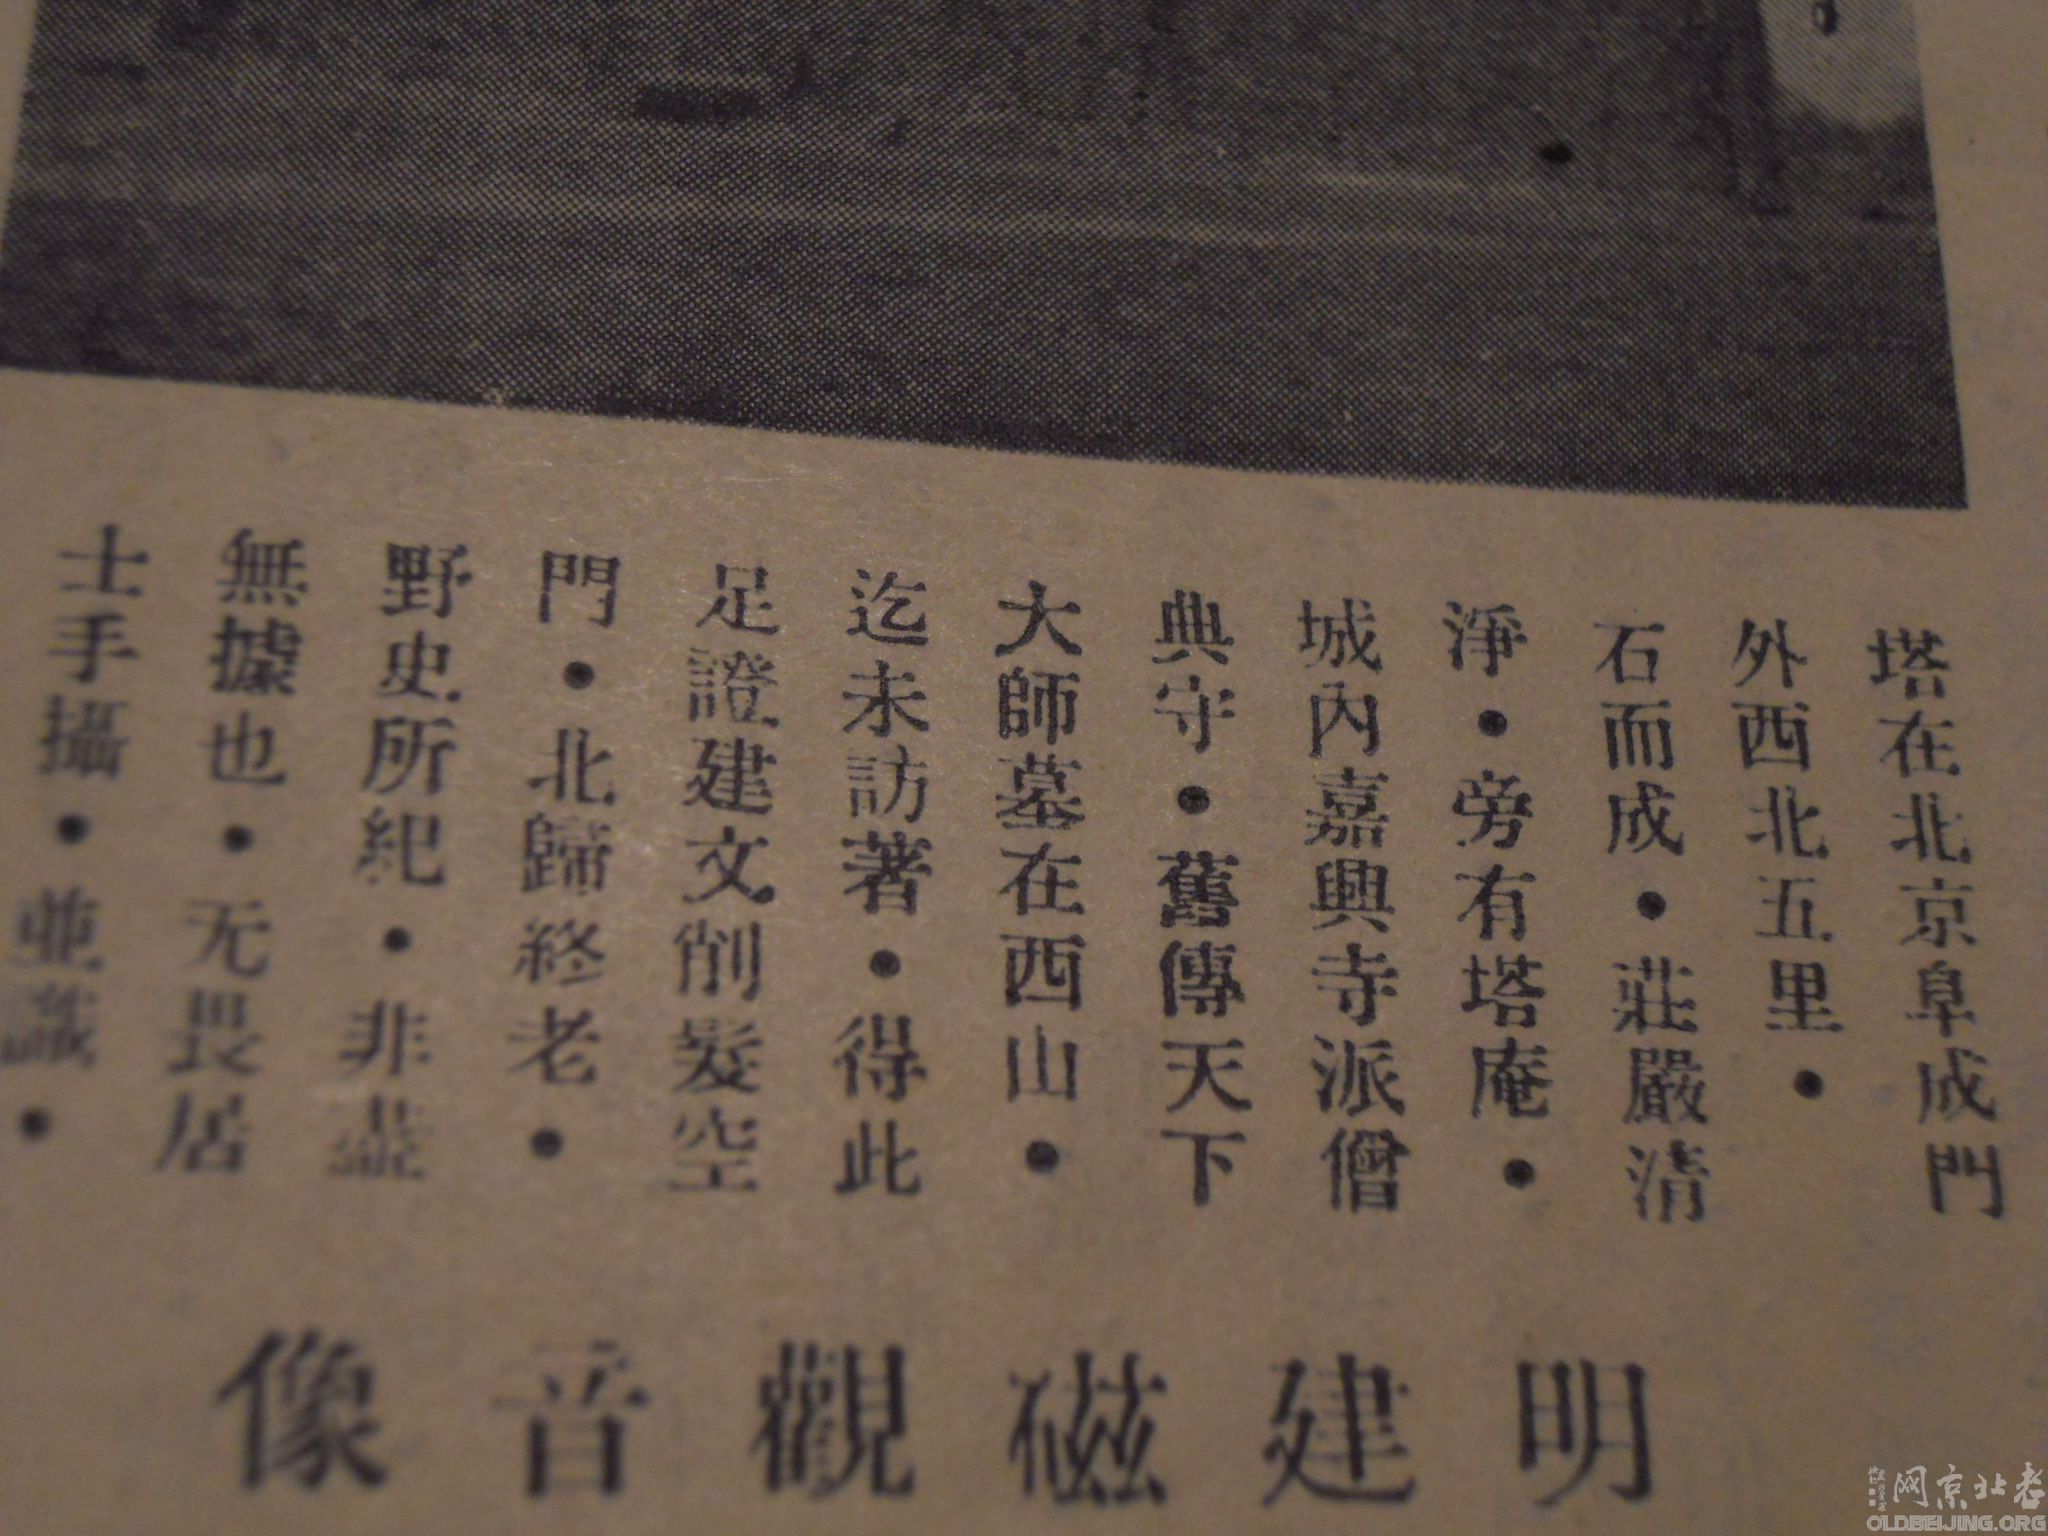 塔在北京阜成門
外西北五里•
石而成•莊嚴清
淨•旁有塔庵•
城內嘉興寺派僧
典守•舊傳天下
大師墓在西山•
迄未訪著•得此
足證建文削髮空
門•北歸終老•
野史所紀•非盡
無據也•无畏居
士手攝•並識•
明建磁觀音像
老北京网
OLDBEIJING.ORG